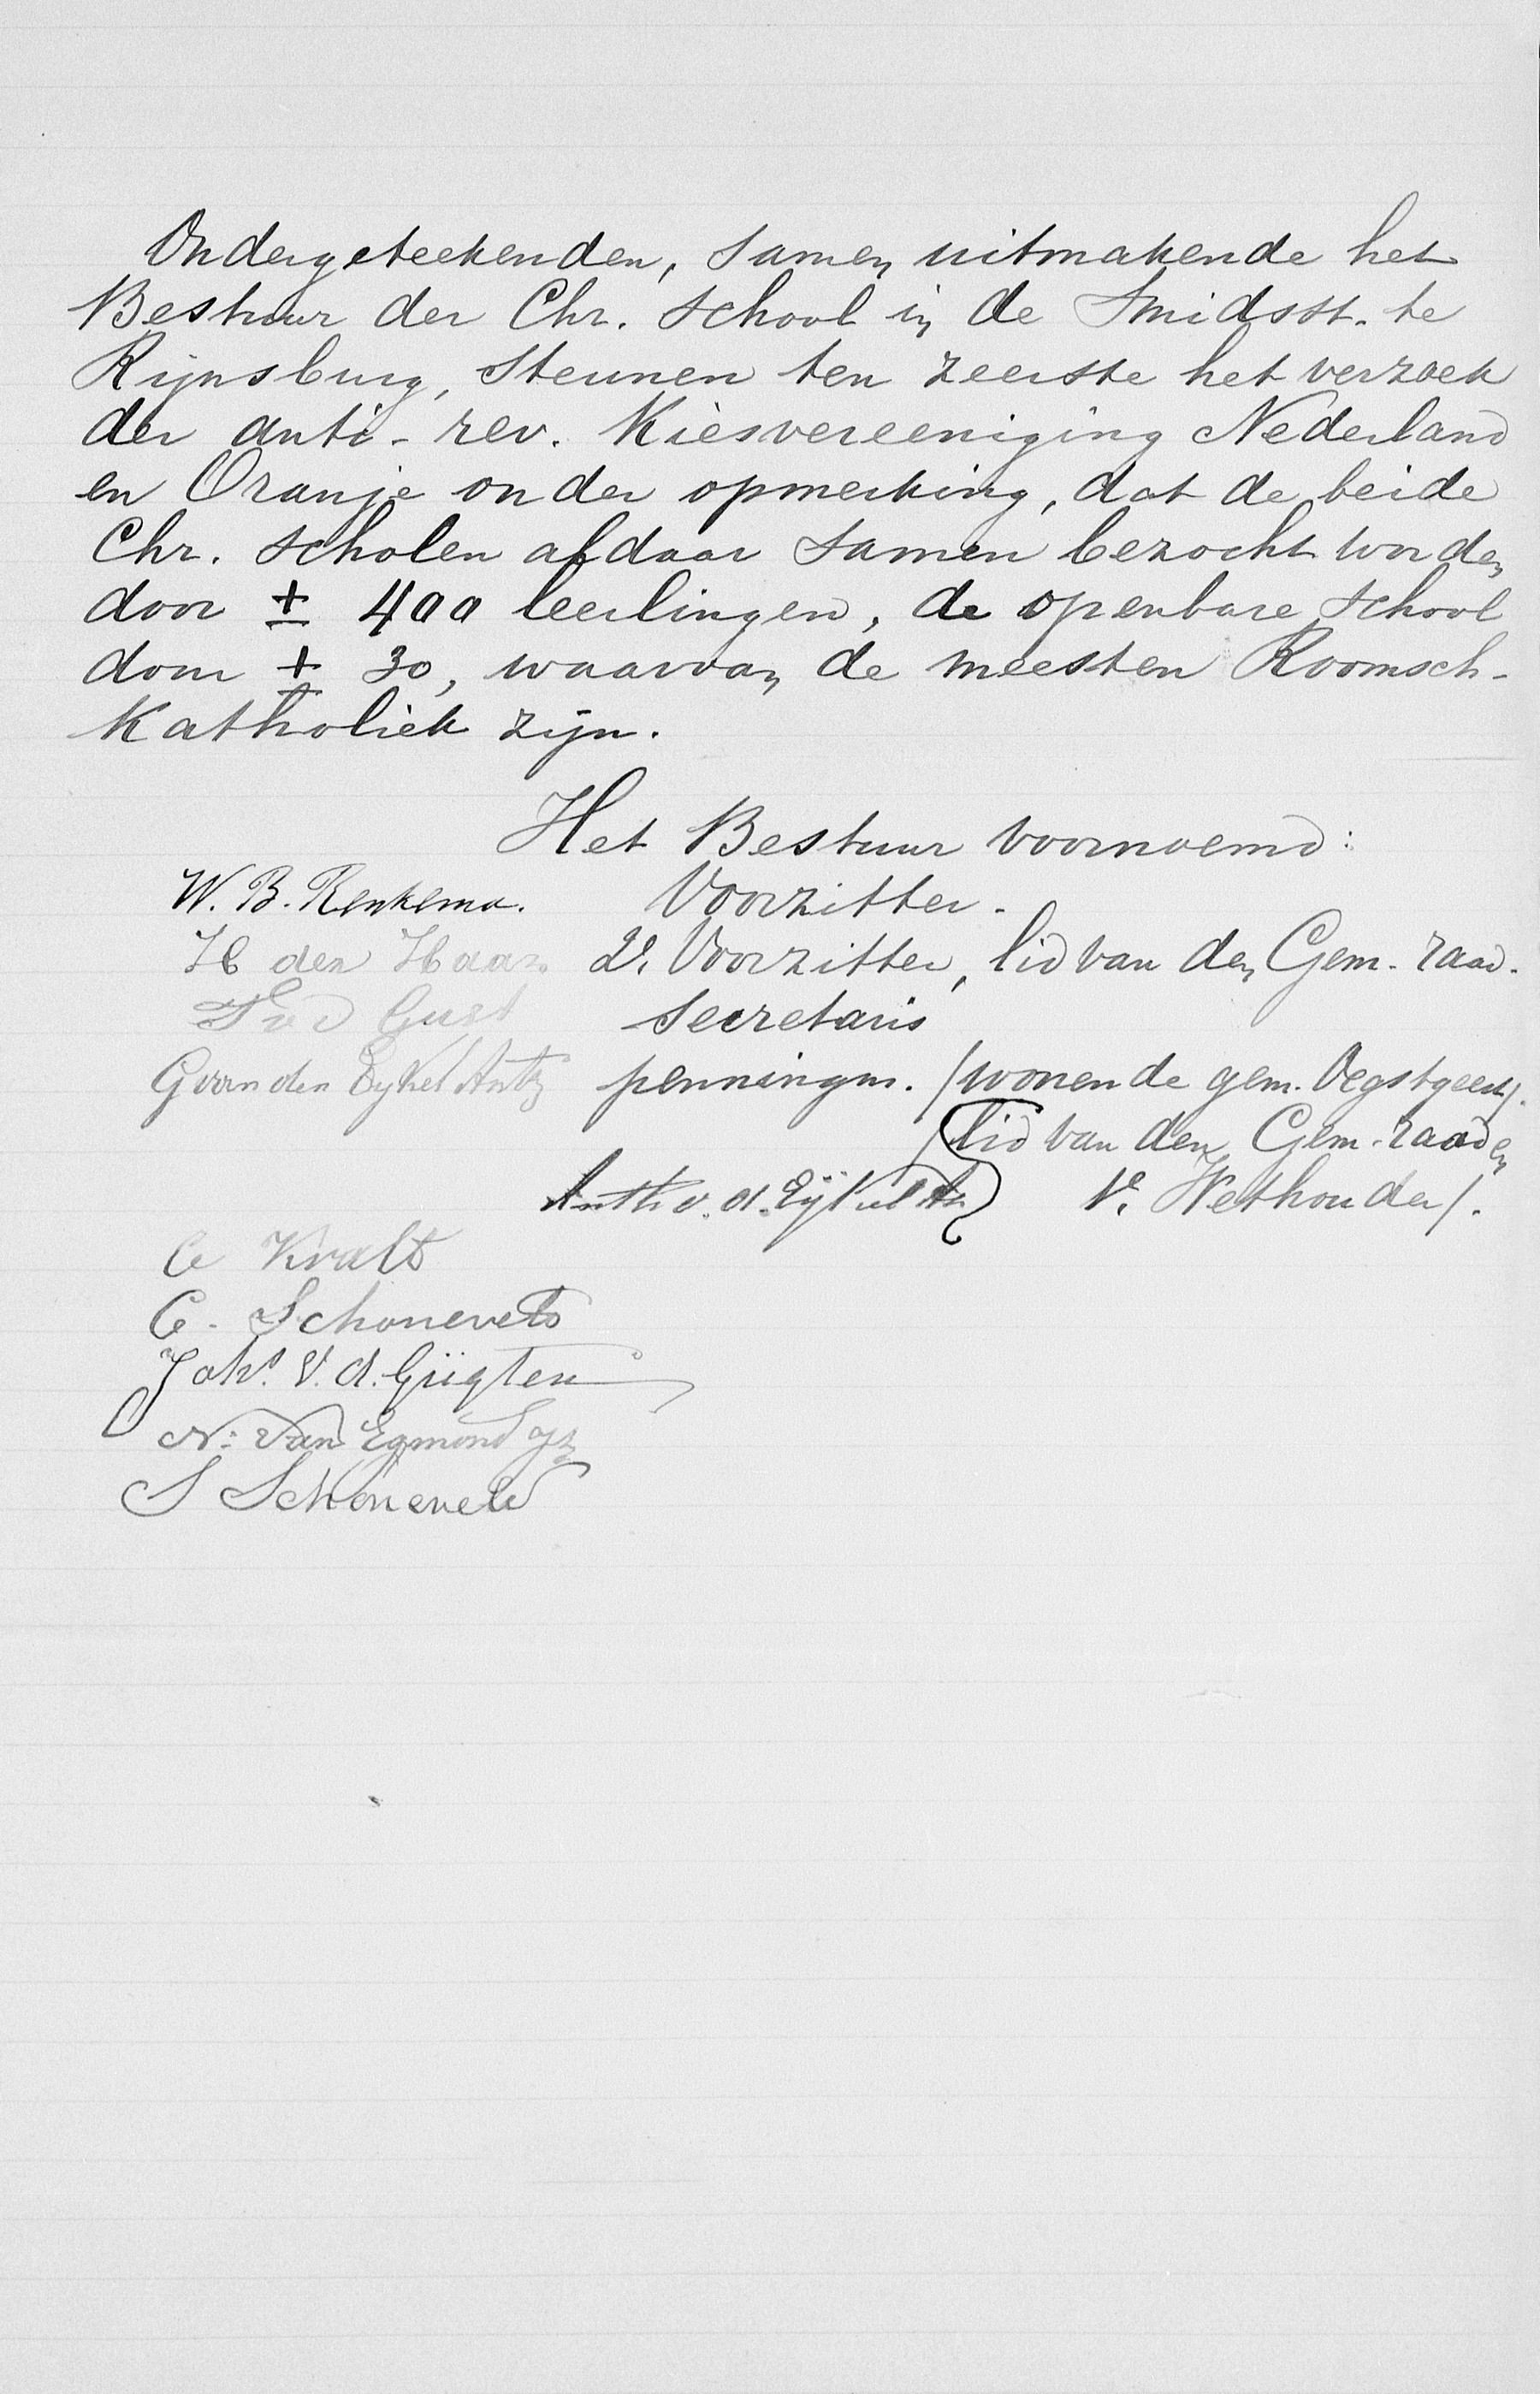 Ondergeteekenden, samen uitmakende het
Bestuur der Chr. school in de Smidsst. te
Rijnsburg, steunen ten zeerste het verzoek
der anti-rev. Kiesvereeniging Nederland
en Oranje onder opmerking, dat de beide
Chr. scholen aldaar samen bezocht worden
door ± 400 leerlingen, de openbare school
door ± 30, waarvan de meesten Roomsch-
Katholiek zijn.
Het Bestuur voornoemd:
W. B. Renkema. Voorzitter.
H den Haan 2e Voorzitter, lid van den Gem. raad.
secretaris
G van den Eykel Antz penningm. (wonende gem. Oegstgeest).
(lid van den Gem. raad en
Anth v. d. Eijkel 1e Wethouder).
C Kralt
C. Schoneveld
Johs. v. d. Gugten
N. van Egmond Gz
S Schoneveld